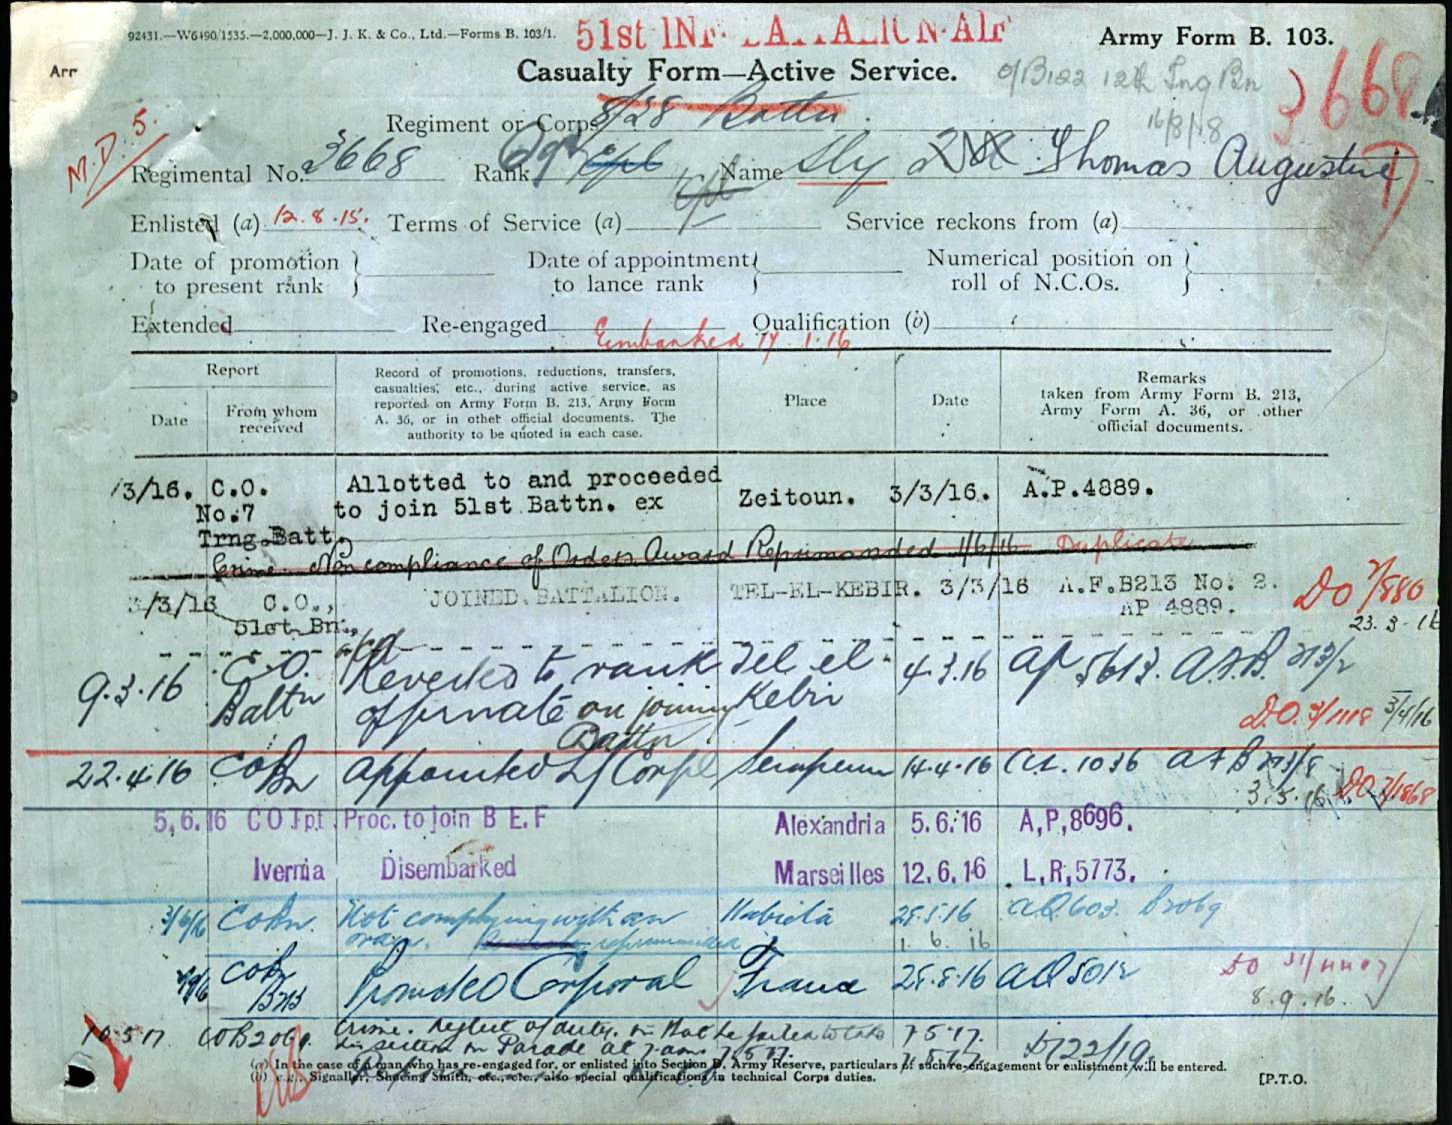 92431.—W6490/1535.—2,000,000—J. J. K. & Co., Ltd.—Forms B. 103/1.
51st INF. BATTALION AIF
Army Form B. 103.
Arr
Casualty Form—Active Service.
12th Trng Bn
16/8/18
3668
M.D. 5.
Regiment or Corps 8/28 Battn.
Regimental No. 3668 Rank Cpl Name Sly Thomas Augustine
Cpl
Enlisted (a) 12.8.15. Terms of Service (a) Service reckons from (a)
Date of promotion to present rank } Date of appointment to lance rank } Numerical position on roll of N.C.Os. }
Extended Re-engaged Qualification (b)
Embarked 17.1.16
Report
Date
From whom received
Record of promotions, reductions, transfers, casualties, etc., during active service, as reported on Army Form B. 213, Army Form A. 36, or in other official documents. The authority to be quoted in each case.
Place
Date
Remarks taken from Army Form B. 213, Army Form A. 36, or other official documents.
3/16. C.O. Allotted to and proceeded
No.7 to join 51st Battn. ex Zeitoun. 3/3/16. A.P.4889.
Trng.Batt.
Crime. Non compliance of Orders Award Reprimanded 1/6/16 Duplicate
3/3/16 C.O., JOINED BATTALION. TEL-EL-KEBIR. 3/3/16 A.F.B213 No. 2. DO 7/880
51st Bn., AP 4889. 23.3.16
9.3.16 C.O. Reverted to rank Tel el 4.3.16 AP 5613. A.F.B. 213/2
Battn of private on joining Kebir D.O. 7/1118 3/4/16
Battn
22.4.16 CO Bn Appointed L/Corpl Serapeum 14.4.16 1036 AFB 213/8 DO 7/1868
3.5.16
5.6.16 C O Tpt Proc. to join B E F Alexandria 5.6.16 A,P,8696.
Ivernia Disembarked Marseilles 12.6.16 L,R,5773.
3/6/16 CO Bn. Not complying with an 28.5.16
order. reprimanded 1.6.16
CO Bn Promoted Corporal France 28.8.16
8.9.16.
10.5.17 Crime. Neglect of duty. in that he failed to take 7.5.17.
his section on Parade at 7 am 7.5.17.
(a) In the case of a man who has re-engaged for, or enlisted into Section D, Army Reserve, particulars of such re-engagement or enlistment will be entered.
(b) e.g., Signaller, Shoeing Smith, etc., etc., also special qualifications in technical Corps duties.
[P.T.O.